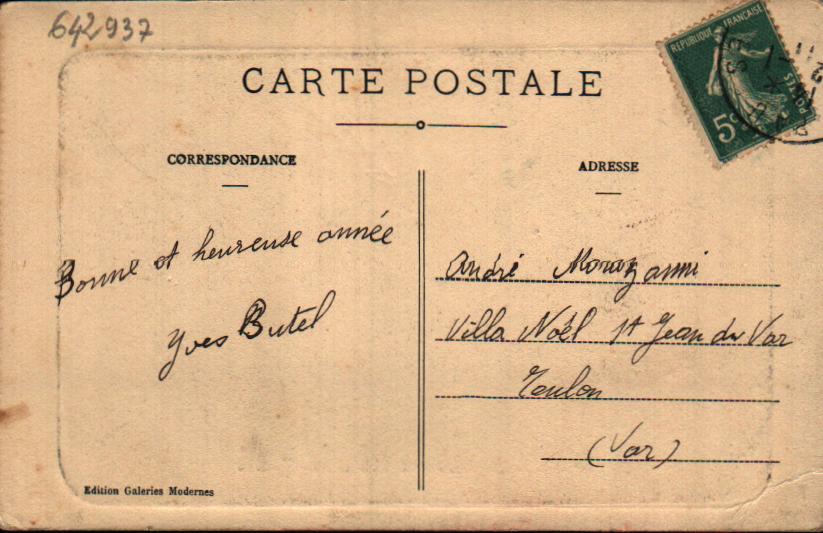 642937
CARTE POSTALE
RÉPUBLIQUE FRANÇAISE
POSTES
5c
CORRESPONDANCE
ADRESSE
Bonne et heureuse année
Yves Butel
André
Villa Noël St Jean du Var
Toulon
(Var)
Edition Galeries Modernes